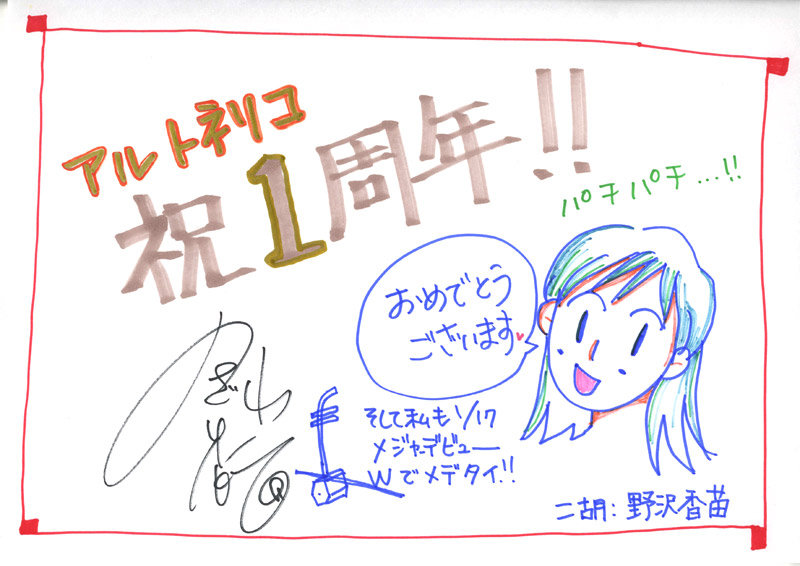 アルトネリコ
祝1周年!!
パチパチ...!!
おめでとう
ございます
そして私も1/17
メジャーデビュー
Wでメデタイ!!
二胡:野沢香苗